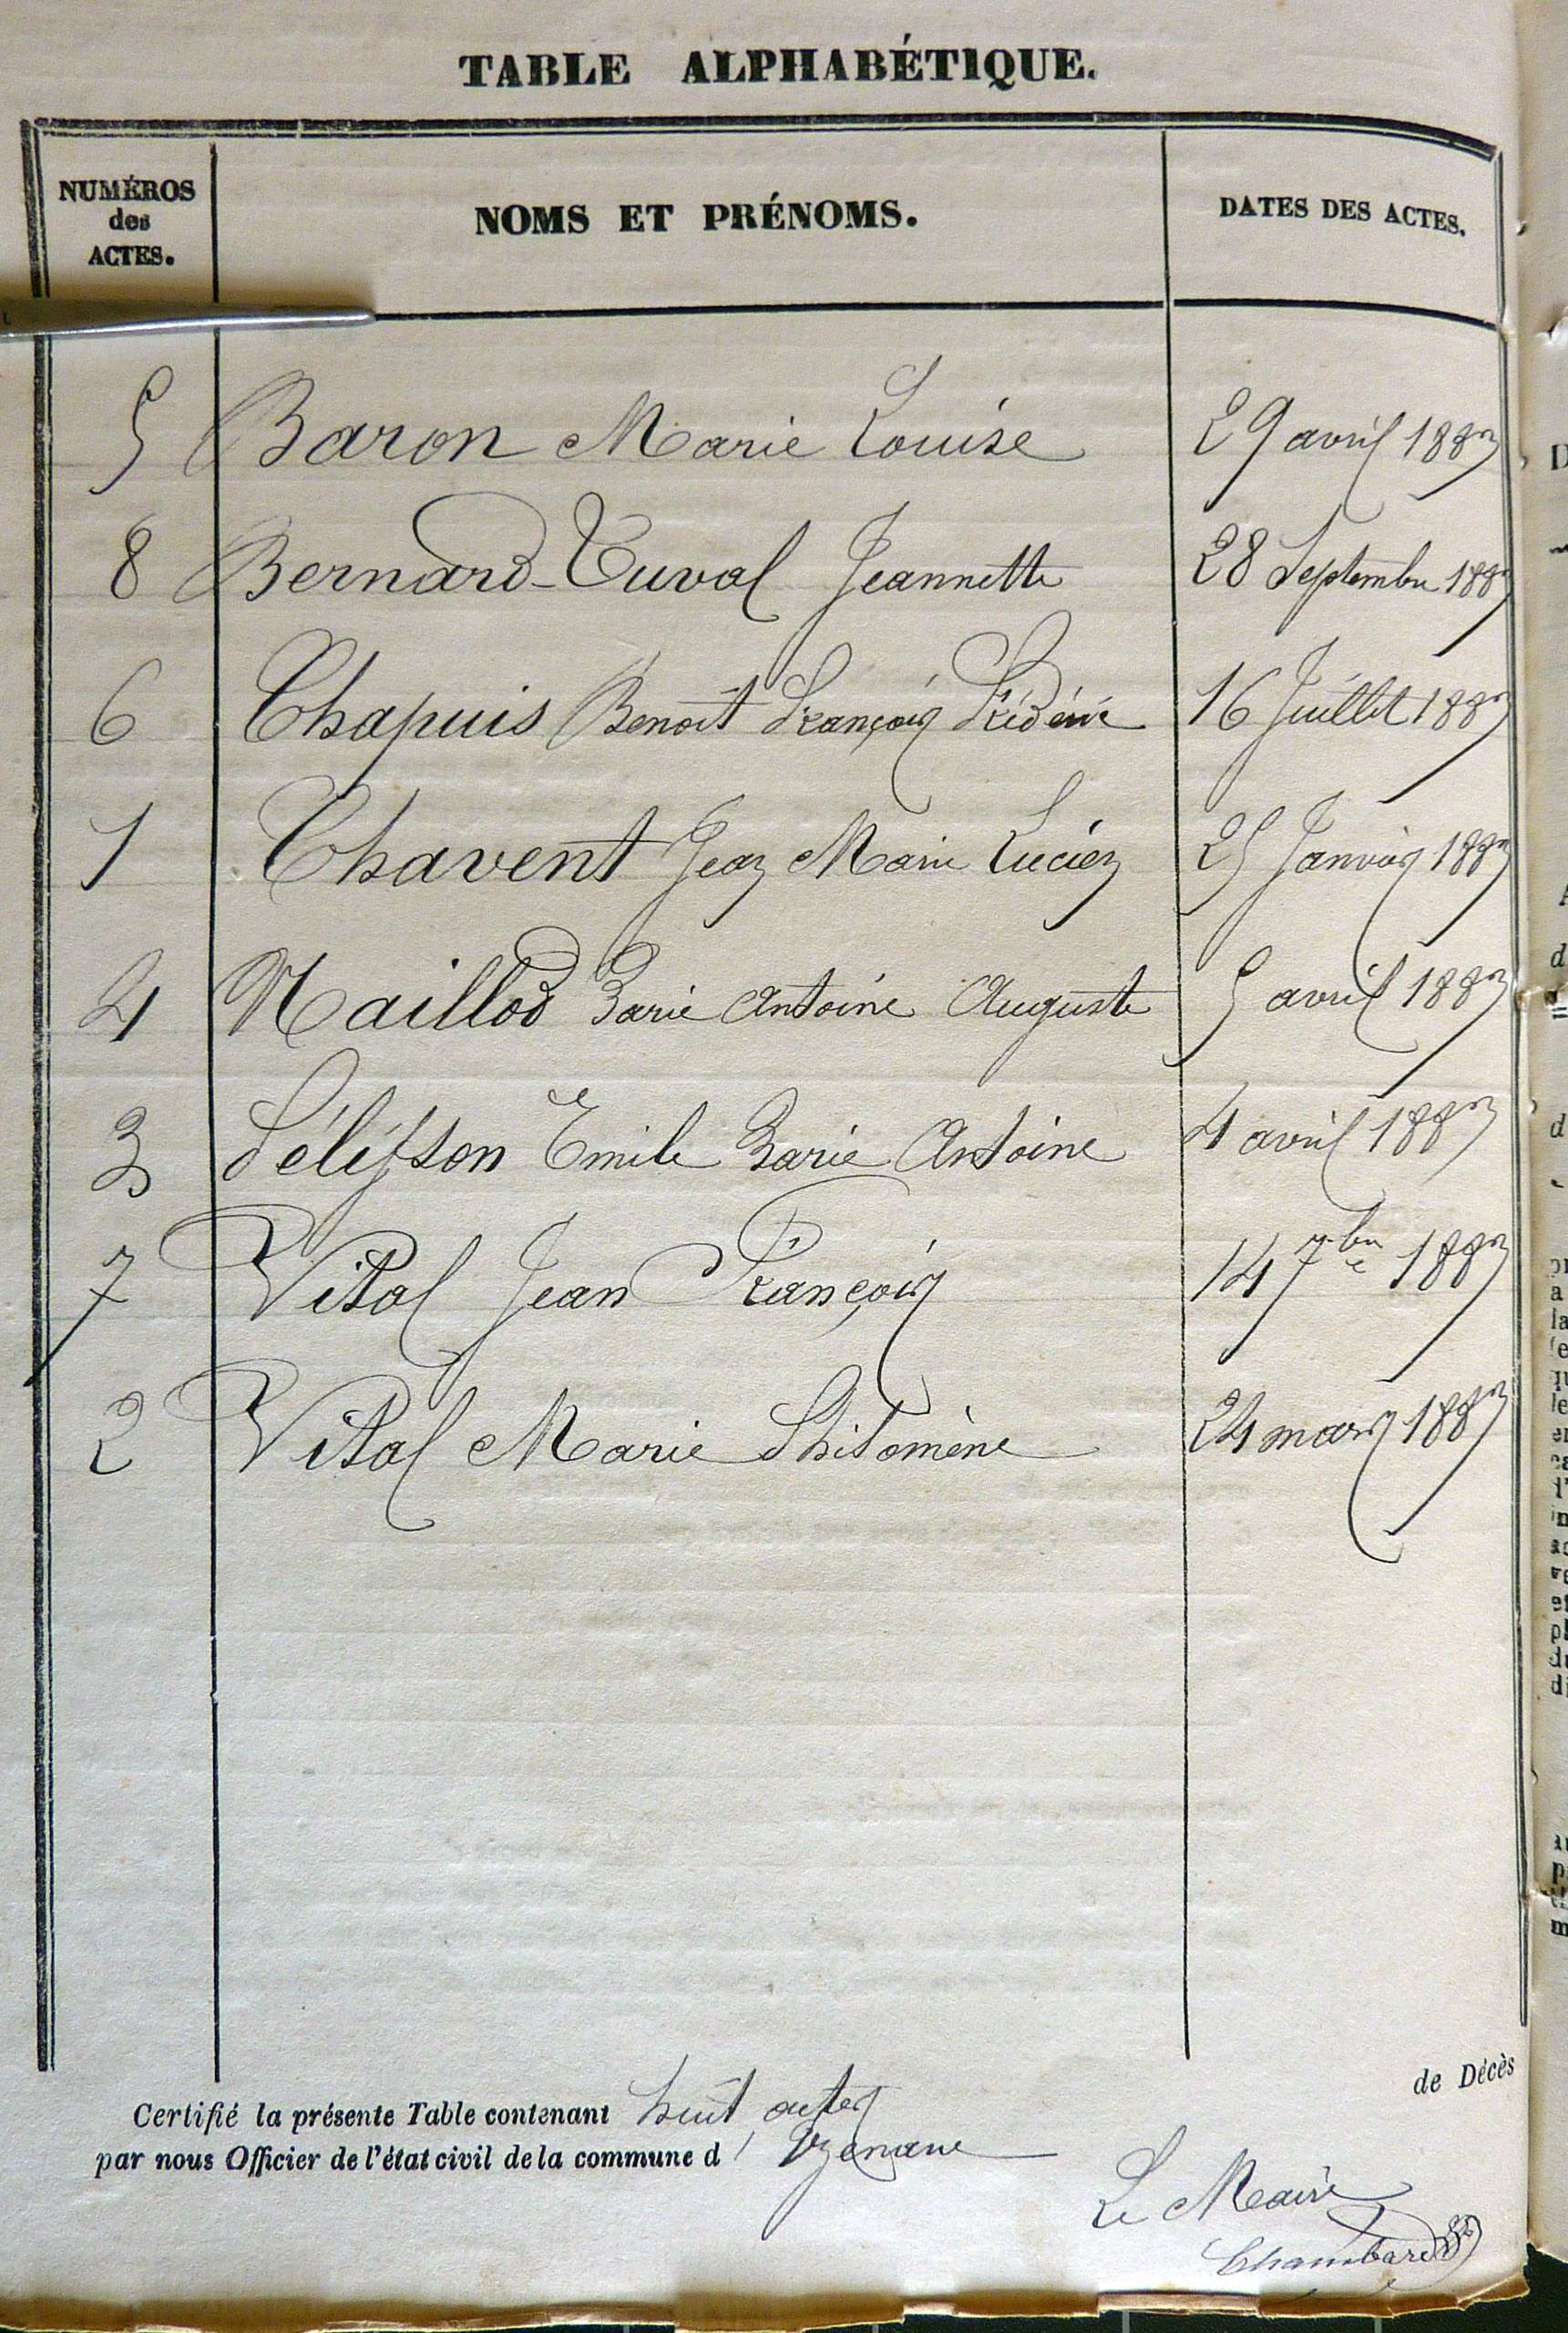 TABLE ALPHABÉTIQUE.
NUMÉROS
des
ACTES.
NOMS ET PRÉNOMS.
DATES DES ACTES.
5 Baron Marie Louise 29 avril 1883
8 Bernard-Tuval Jeannette 28 Septembre 1883
6 Chapuis Benoît François Frédéric 16 Juillet 1883
1 Chavent Jean Marie Lucien 25 Janvier 1883
4 Maillod Marie Antoine Auguste 5 avril 1883
3 Pélisson Emile Marie Antoine 4 avril 1883
7 Vital Jean François 14 7bre 1883
2 Vital Marie Philomène 24 mars 1883
de Décès
Certifié la présente Table contenant huit actes
par nous Officier de l'état civil de la commune d'
Le Maire
Chambard